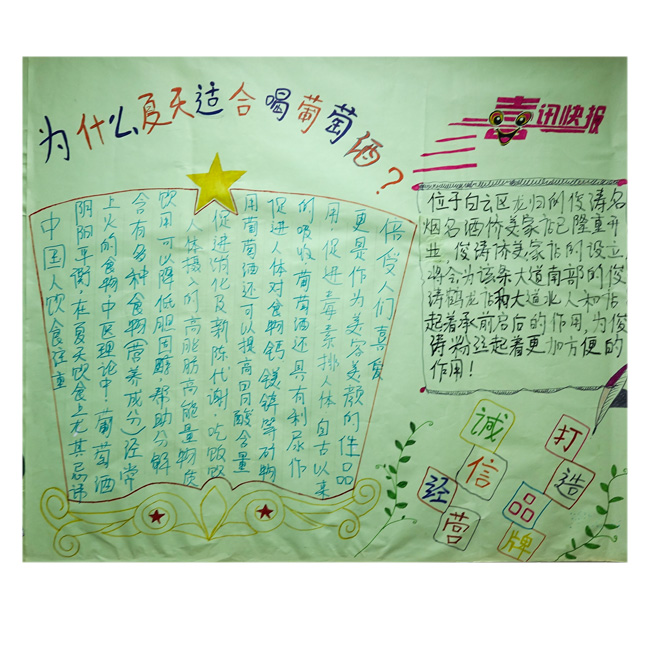 为什么夏天适合喝葡萄酒?
中国人饮食注重
阴阳平衡.在夏天饮食上尤其忌讳
上火的食物中医理论中.葡萄酒
含有多种食物(营养成分)经常
饮用可以降低胆固醇 帮助分解
人体摄入的高脂肪高能量物质
促进消化及新陈代谢.吃饭饮
用葡萄酒还可以提高回酸含量
促进人体对食物钙镁锌等矿物
的吸收葡萄酒还具有利尿作
用.促进毒素排人体自古以来
更是作为美容美颜的佳品
倍受人们喜爱
喜讯快报
位于白云区龙归的俊涛名
烟名酒侨美家店已隆重开
业.俊涛侨美家店的设立,
将会为该条大道南部的俊
涛鹤龙店和大道北人和店
起着承前启后的作用,为俊
涛粉丝起着更加方便的
作用!
减信经营
打造品牌